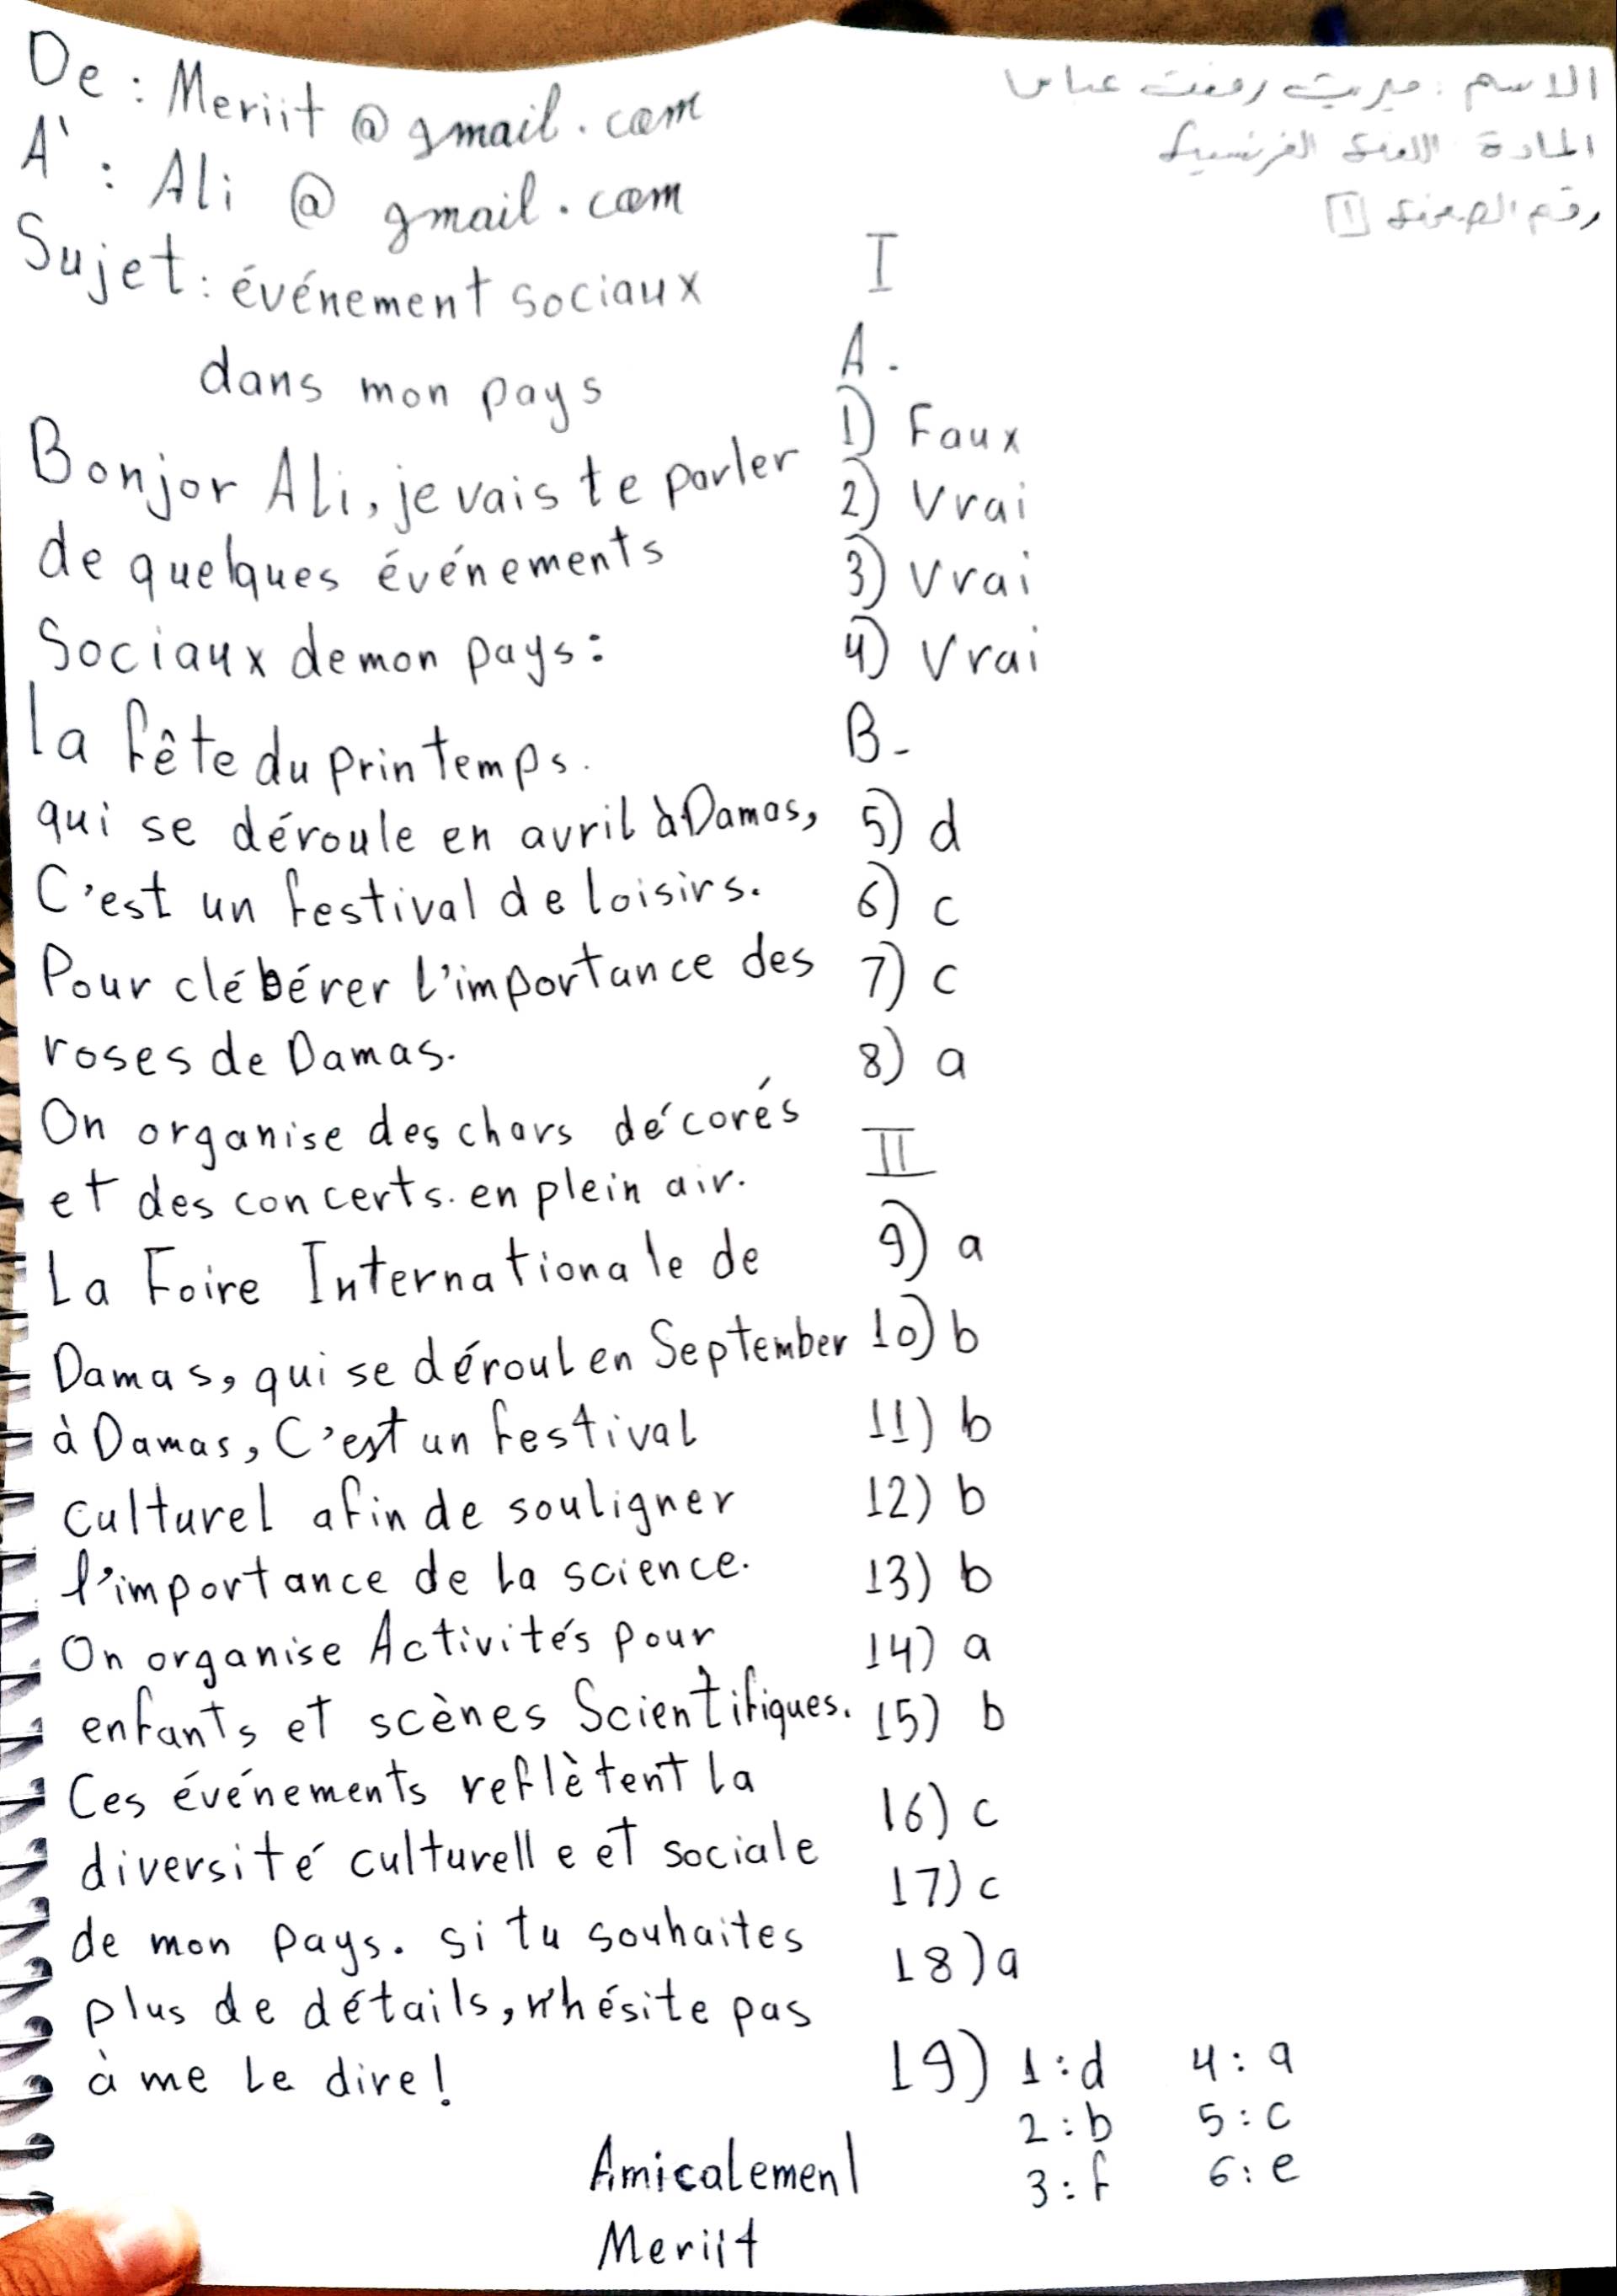 الاسم : ميريت رفعت عباس
المادة اللغة الفرنسية
رقم الصفحة [1]
De : Meriit @ gmail . com
A` : Ali @ gmail . com
Sujet : événement sociaux
dans mon pays
Bonjor Ali, je vais te parler
de quelques événements
Sociaux de mon pays :
la fête du printemps.
qui se déroule en avril à Damas,
C'est un festival de loisirs.
Pour clébérer l'importance des
roses de Damas.
On organise des chars décorés
et des concerts. en plein air.
La Foire Internationale de
Damas, qui se déroul en September
à Damas, C'est un festival
culturel afin de souligner
l'importance de la science.
On organise Activités pour
enfants et scènes Scientifiques.
Ces événements reflètent la
diversité culturelle et sociale
de mon pays. si tu souhaites
plus de détails, n'hésite pas
à me le dire!
Amicalement
Meriit
I
A.
1) Faux
2) Vrai
3) Vrai
4) Vrai
B-
5) d
6) c
7) c
8) a
II
9) a
10) b
11) b
12) b
13) b
14) a
15) b
16) c
17) c
18) a
19) 1 : d 4 : a
2 : b 5 : c
3 : f 6 : e